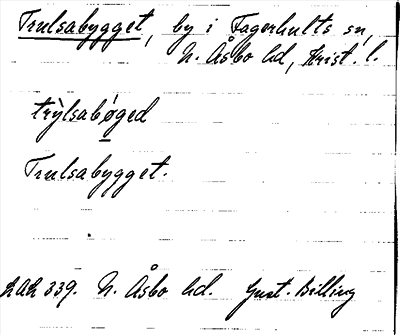 Trulsabygget, by i Fagerhults sn,
N. Åsbo hd, Krist. l.
trỳlsabǿged
Trulsabygget.
LAL 339. N. Åsbo hd. Gust. Billing